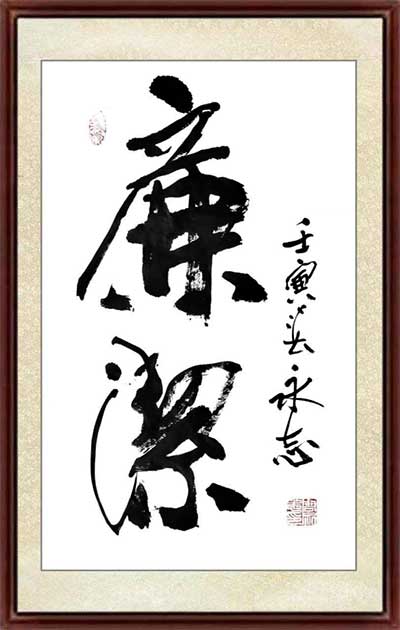 廉潔
壬寅芒 永志